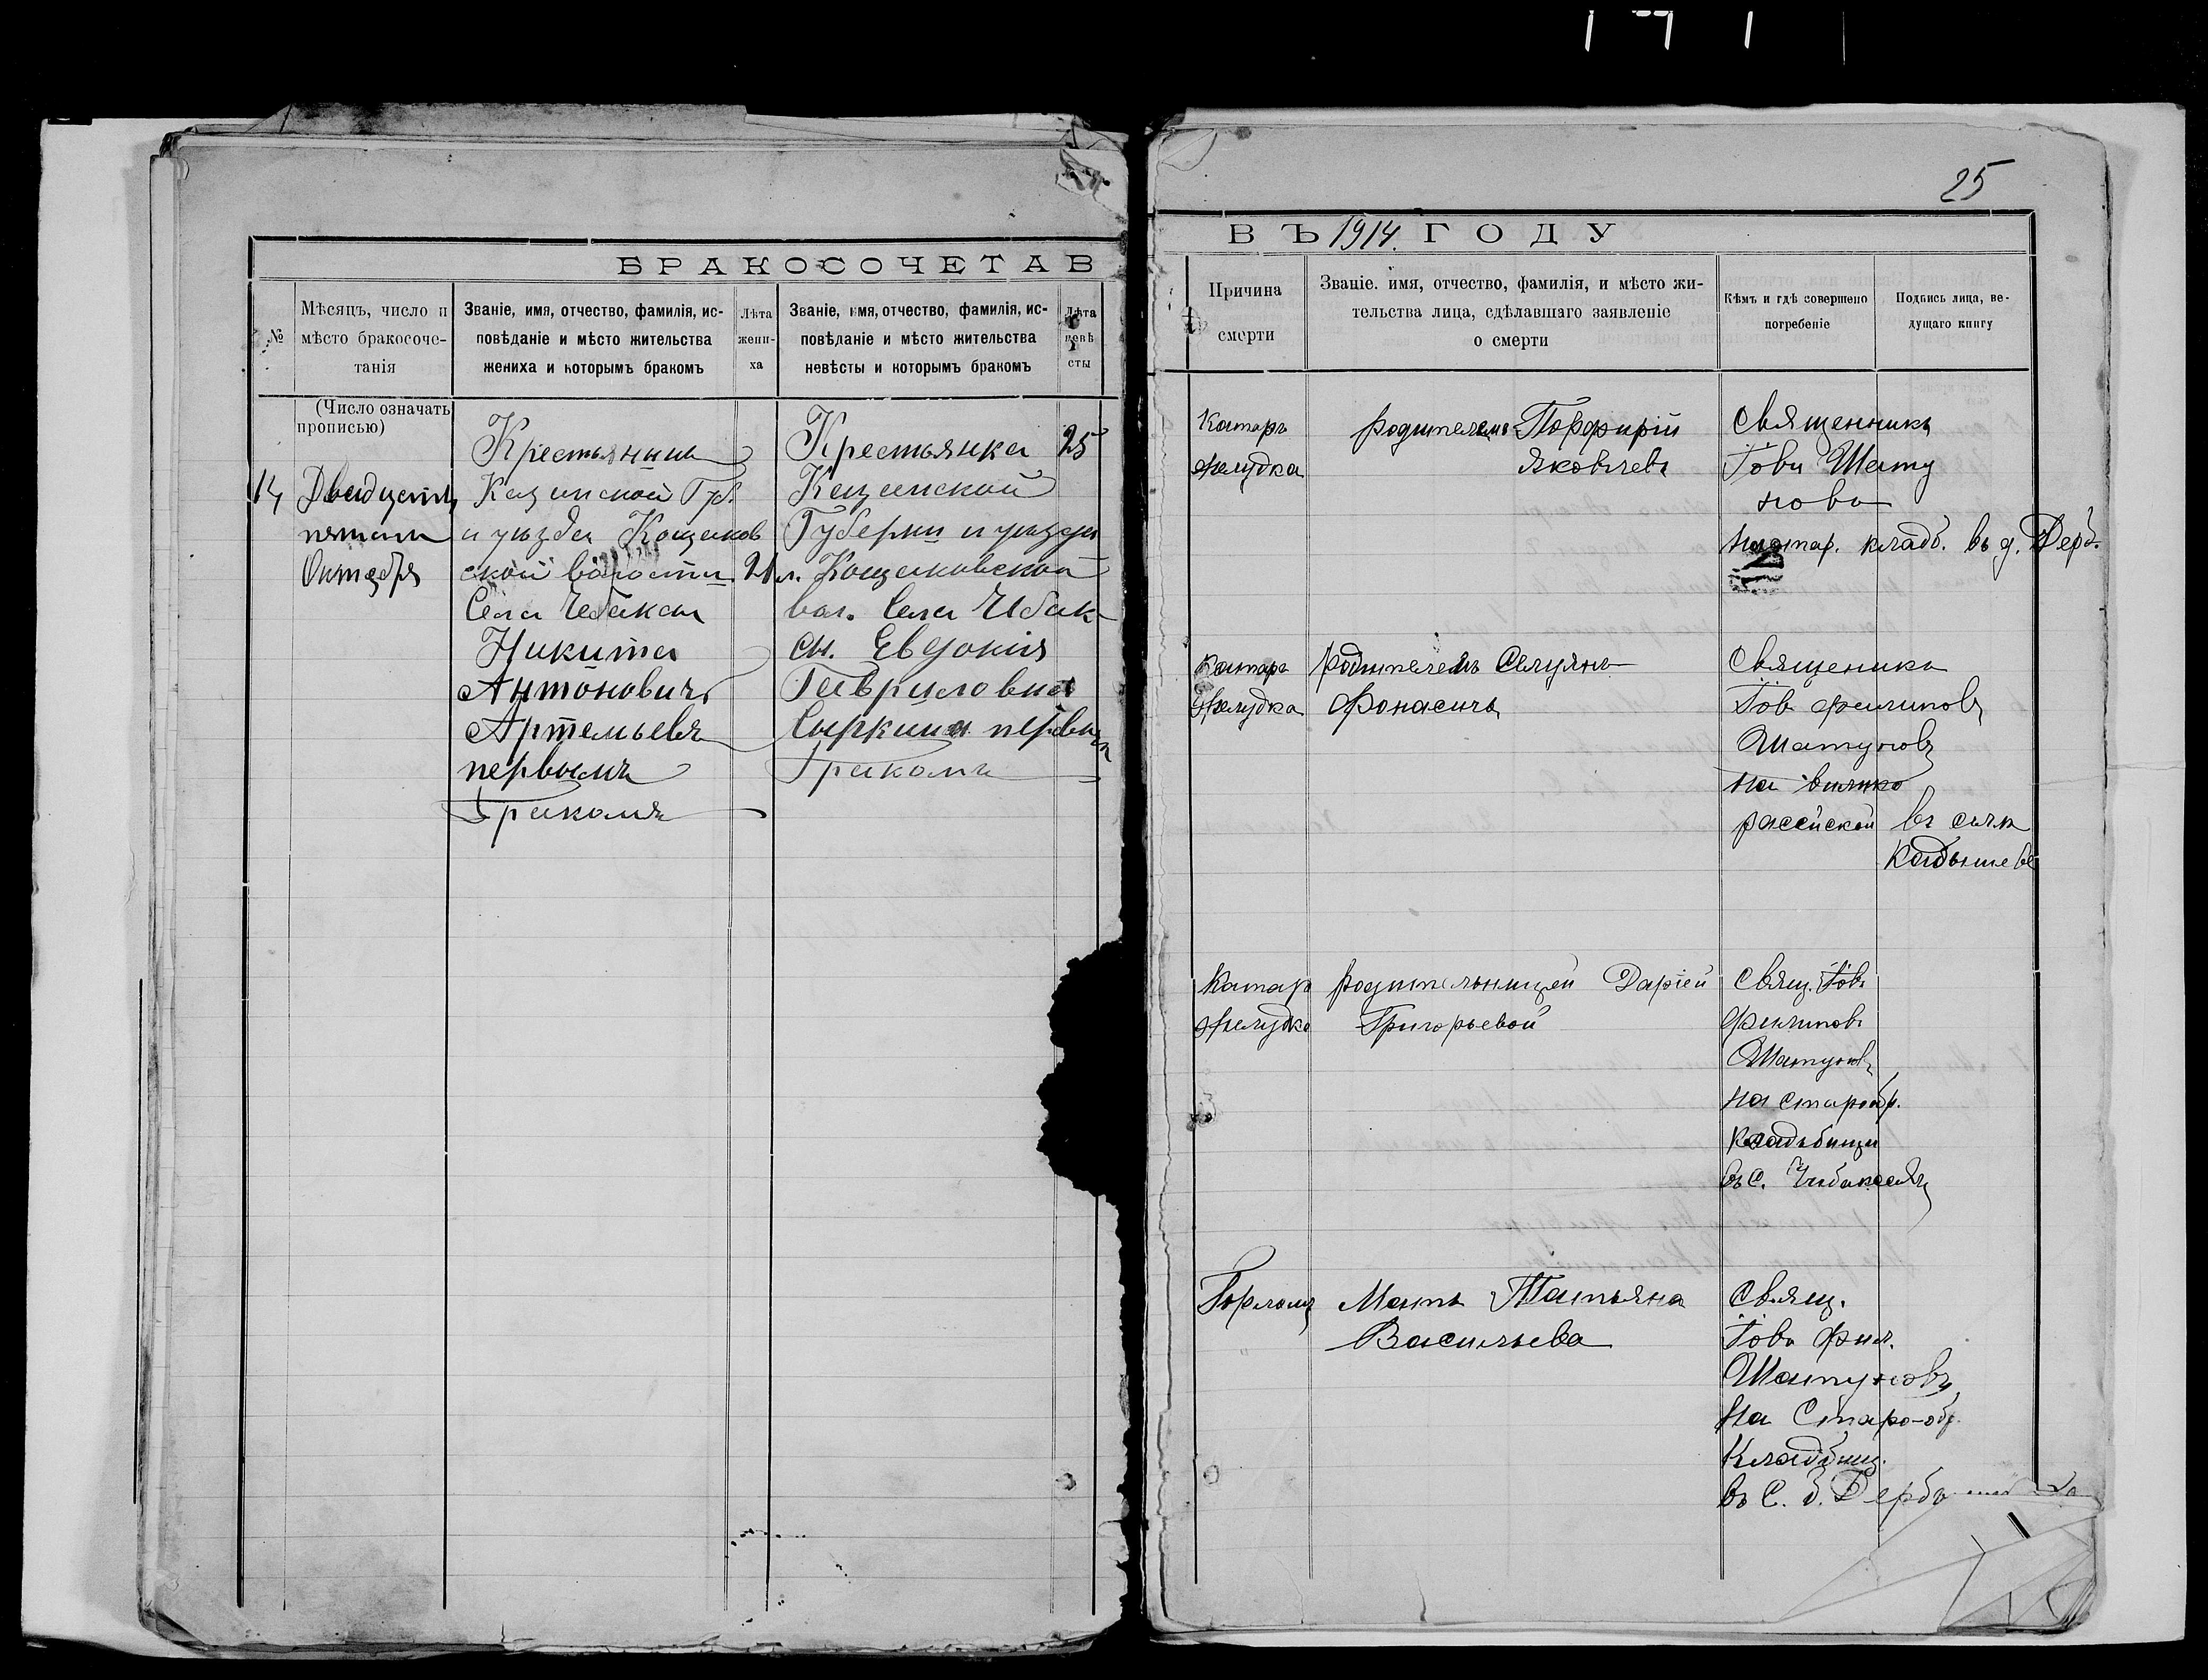 БРАКОСОЧЕТАВ
№
Мѣсяцъ, число и
мѣсто бракосоче-
танія
Званіе, имя, отчество, фамилія, ис-
повѣданіе и мѣсто жительства
жениха и которымъ бракомъ
Лѣта
жени-
ха
Званіе, имя, отчество, фамилія, ис-
повѣданіе и мѣсто жительства
невѣсты и которымъ бракомъ
Лѣта
невѣ
сты
(Число означать
прописью)
14
Двадцать
пятаго
Октября
Крестьянинъ
Казанской Губ.
и уѣзда Кощаков
ской волости
Села Чебакса
Никита
Антоновичъ
Артемьевъ
первымъ
бракомъ
21 л.
Крестьянка
Казанской
Губерни и уѣзда
Кощаковской
вол. Села Чебак
са. Евдокия
Гавриловна
Сыркина первым
бракомъ
25
25
ВЪ 1914 ГОДУ
Причина
смерти
Званіе. имя, отчество, фамилія, и мѣсто жи-
тельства лица, сдѣлавшаго заявленіе
о смерти
Кѣмъ и гдѣ совершено
погребеніе
Подпись лица, ве-
дущаго книгу
Катаръ
желудка
родителемъ Порфирій
Яковлевъ
Священникъ
Іовъ Шату
новъ
на стар. кладб. въ д. Дерб.
Катаръ
желудка
родителемъ Селуянъ
Фонасичъ
Священикъ
Іов Филиповъ
Шатуновъ
на
расейской въ силѣ
Кадышеве
Катар
желудка
родительницей Даріей
Григорьевой
Свящ. Іовъ
Филиповъ
Шатуновъ
на старобр.
кладьбищи
въ С. Чибаксахъ
Горломъ
Мать Татьяна
Васильева
Свящ.
Іовъ Фил.
Шатуновъ
на Старо-обр.
Кладбищ.
въ С. д.